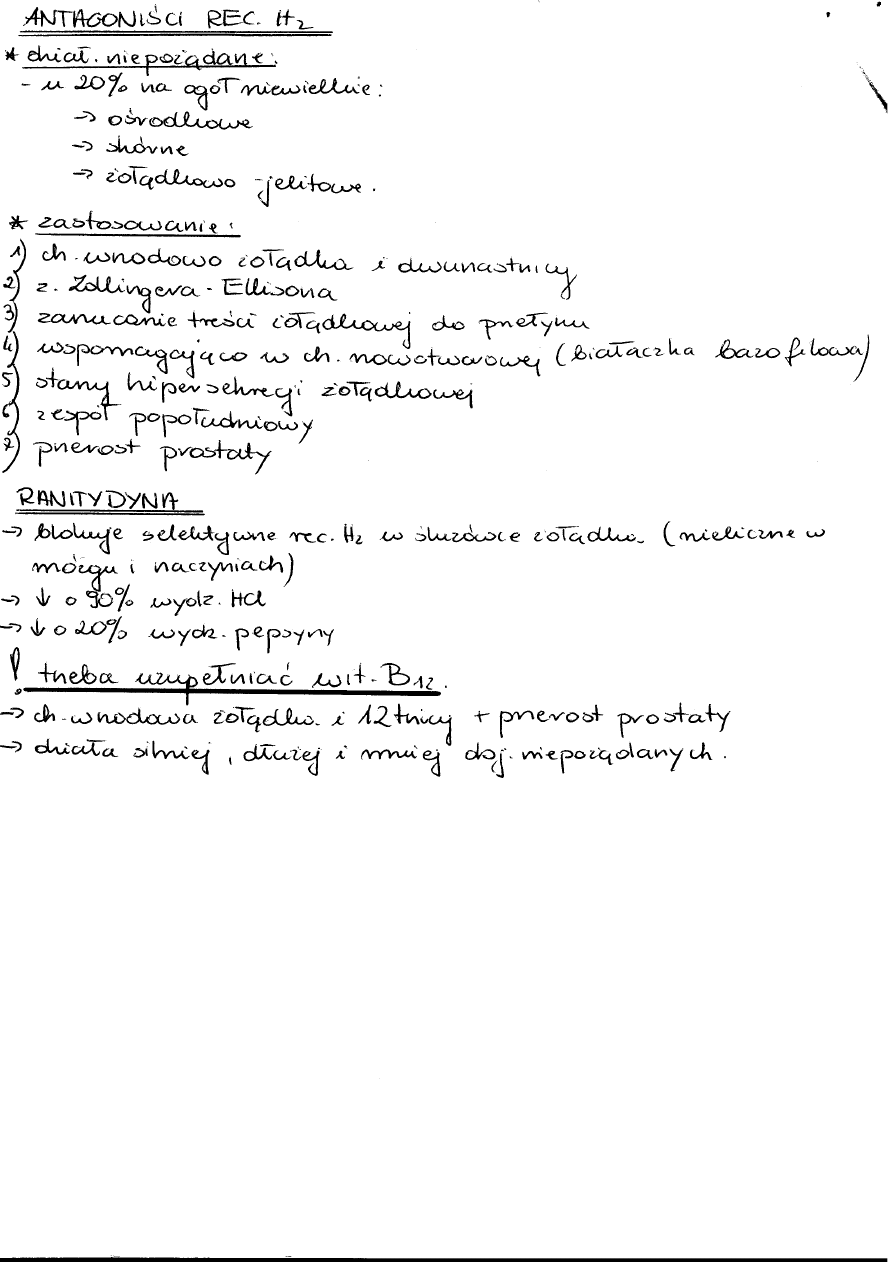 ANTAGONIŚCI REC. H2
* dział. niepożądane:
- u 20% na ogół niewielkie:
→ ośrodkowe
→ skórne
→ żołądkowo-jelitowe.
* zastosowanie:
1) ch. wrzodowo żołądka i dwunastnicy
2) z. Zollingera-Ellisona
3) zarzucanie treści żołądkowej do przełyku
4) wspomagająco w ch. nowotworowej (białaczka bazofilowa)
5) stany hipersekrecji żołądkowej
6) zespół popołudniowy
7) przerost prostaty
RANITYDYNA
→ blokuje selektywne rec. H2 w śluzówce żołądka (nieliczne w
mózgu i naczyniach)
→ ↓ o 90% wydz. HCl
→ ↓ o 20% wydz. pepsyny
! trzeba uzupełniać wit. B12.
→ ch. wrzodowa żołądka i 12tnicy + przerost prostaty
→ działa silniej, dłużej i mniej doj. niepożądanych.